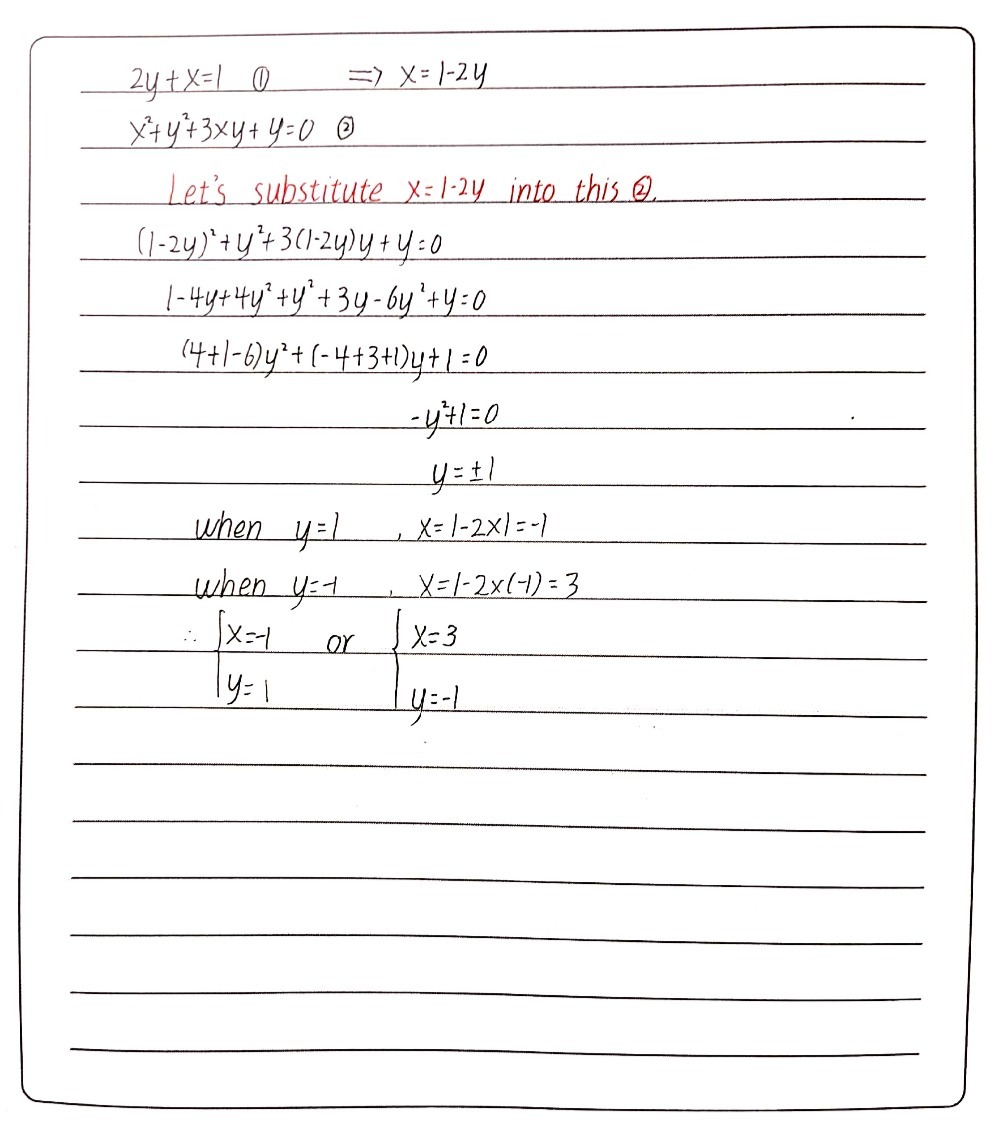 2y+x=1 ① ⇒ x=1-2y
x²+y²+3xy+y=0 ②
Let's substitute x=1-2y into this ②.
(1-2y)²+y²+3(1-2y)y+y=0
1-4y+4y²+y²+3y-6y²+y=0
(4+1-6)y²+(-4+3+1)y+1=0
-y²+1=0
y=±1
when y=1 , x=1-2×1=-1
when y=-1 , x=1-2×(-1)=3
∴ { x=-1 or { x=3
y=1 y=-1